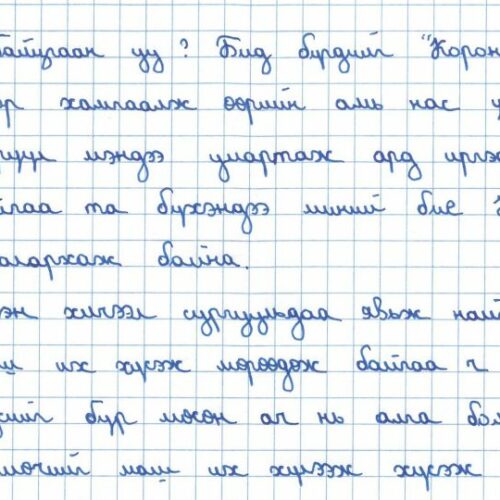 байцгаан уу ? Бид бүрдийг "Корон
ор хамгаалж өөрийн амь нас
рүүл мэндээ умартаж ард иргэ
йгаа та бүхэндээ миний бие
алархаж байна.
эн хичээл сургуульдаа явьж най
ш их хүсэж мөрөөдөж байгаа ч
дийг бүр мөсөн ач нь алга бол
мөчийг маш их хүлээж хүсэж